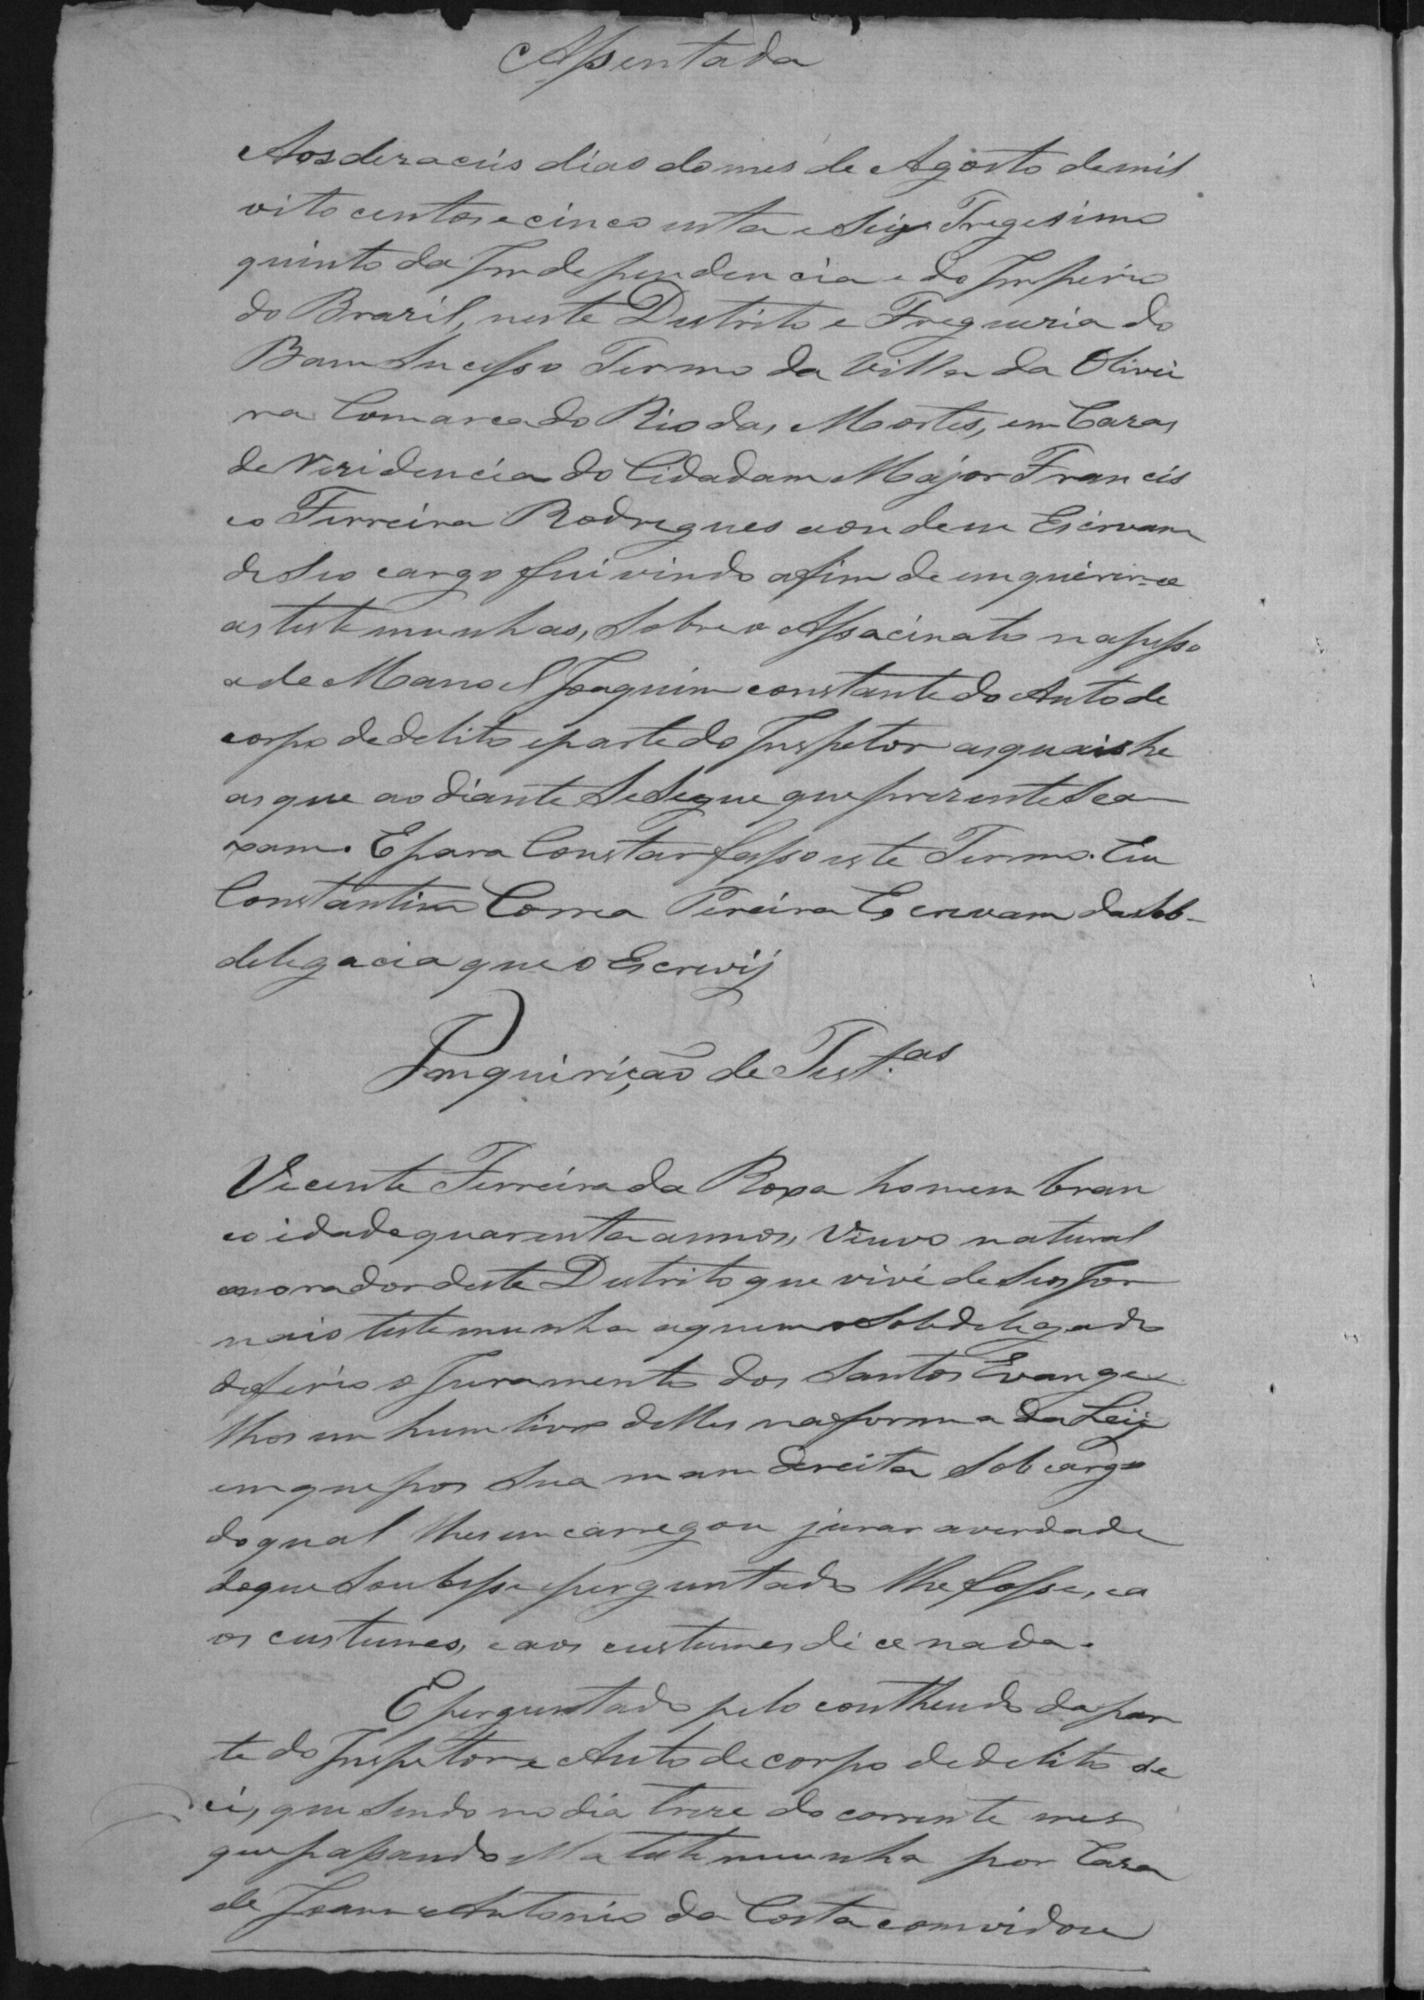 Assentada
Aos dezaceis dias do mes de Agosto de mil
oito centos e cincoenta e Seis Tregesimo
quinto da Independencia e do Imperio
do Brazil, neste Destrito e Freguezia do
Bam Sucesso Termo da Villa da Olivei
ra Comarca do Rio das Mortes, em Cazas
de Rezidencia do Cidadam Major Francis
co Ferreira Rodrigues aonde eu Escrivam
de Seo cargo fui vindo afim de enquerir-ce
as testemunhas, Sobre o Assacinato na pesso
a de Manoel Joaquim constante do Auto de
corpo de delito e parte do Inspetor as quais he
as que ao diante Se Segue que prezente Se a
xam. E para Constar fasso este Termo. Eu
Constantino Correa Pereira Escrevam da Sub-
delegacia que o Escrevij
Inquirição de Test.as
Vicente Ferreira da Roxa homem bran
co idade quarenta annos, Viuvo natural
morador deste Destrito que vive de Seos Jor
nais testemunha a quem o Sobdelegado
deferio o Juramento dos Santos Evange
lhos em hum livro delles na forma da Leij
em que pos Sua mam dereita Sob cargo
do qual lhe encarregou jurar a verdade
do que Soubesse e perguntado lhe fosse, e a
os custumes, e aos custumes dice nada.
E perguntado pelo contheudo da par
te do Inspetor e Auto de corpo de delito de
ci, que Sendo no dia treze do corrente mes
que passando ella testemunha por Caza
de Joam Antonio da Costa comvidou